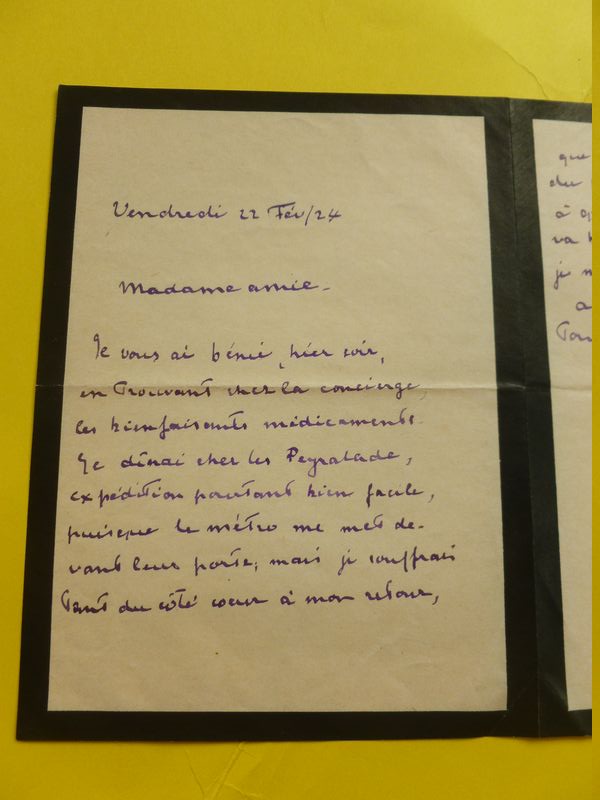 Vendredi 22 Fév/24
Madame amie.
Je vous ai bénie, hier soir,
en trouvant chez la concierge,
les bienfaisants médicaments.
Je dînai chez les Peyralade,
expédition pourtant bien facile,
puisque le métro me met de-
vant leur porte; mais je souffrais
tant du côté cœur à mon retour,
que
du
à
va
je